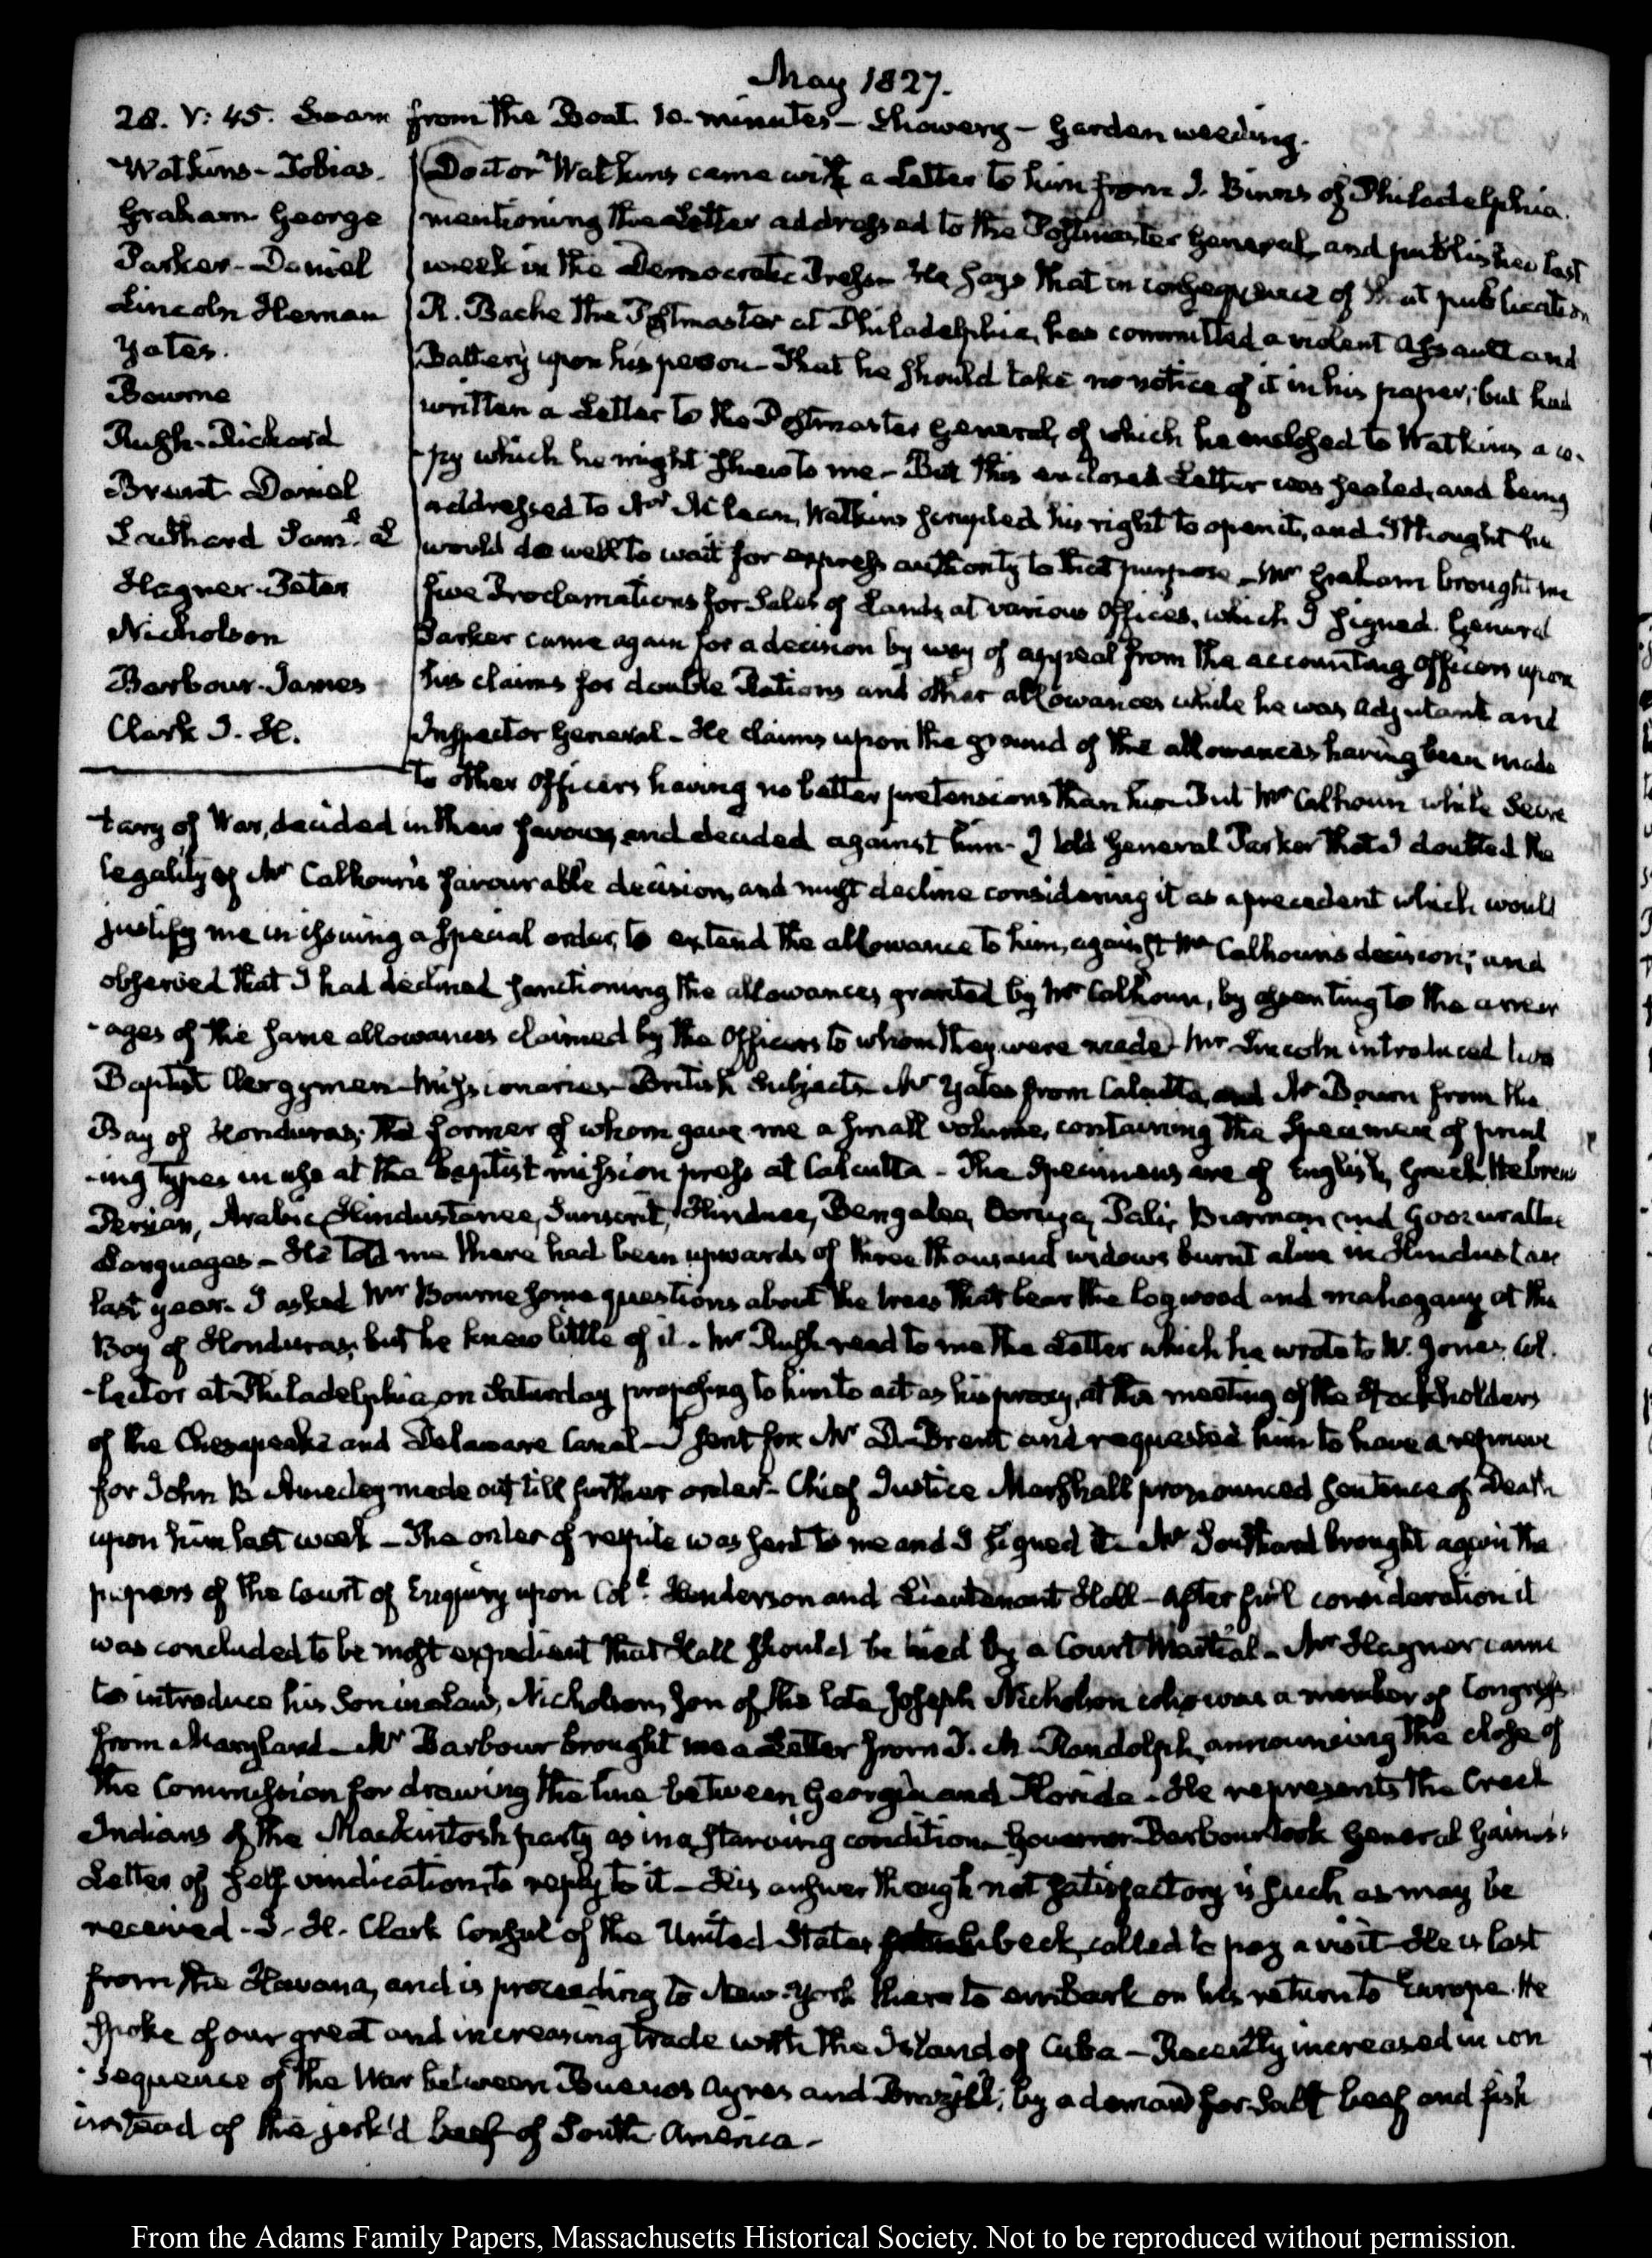 May 1827.
28. V: 45. Swam from the Boat 10 minutes – Showery – Garden weeding.
Watkins – Tobias.
Graham George
Parker – Daniel
Lincoln Heman
Yates.
Bourne
Rush – Richard
Brent Daniel
Southard Saml. L
Hagner – Peter
Nicholson
Barbour – James
Clark J. H.
Doctor Watkins came with a Letter to him from J. Binns of Philadelphia.
mentioning the Letter addressed to the Postmaster General, and published last
week in the Democratic Press – He says that in consequence of that publication
R. Bache the Postmaster at Philadelphia, has committed a violent Assault and
Battery upon his person – That he should take no notice of it in his paper; but had
written a Letter to the Postmaster General, of which he enclosed to Watkins a co-
-py which he might shew to me – But this enclosed Letter was sealed, and being
addressed to Mr McLean, Watkins scrupled his right to open it, and I thought he
would do well to wait for express authority to that purpose – Mr Graham brought me
five Proclamations for Sales of Lands, at various Offices, which I signed. General
Parker came again for a decision by way of appeal from the accounting Officers upon
his claims for double Rations and other allowances while he was Adjutant and
Inspector General – He claims upon the ground of the allowances having been made
to other Officers having no better pretensions than him But Mr Calhoun while Secre
tary of War, decided in their favour, and decided against him – I told General Parker that I doubted the
legality of Mr Calhoun's favourable decision, and must decline considering it as a precedent which would
justify me in issuing a special order, to extend the allowance to him, against Mr Calhoun's decision; and
observed that I had declined sanctioning the allowances granted by Mr Calhoun, by assenting to the arrear
-ages of the same allowances claimed by the Officers to whom they were made – Mr Lincoln introduced two
Baptist Clergymen – Missionaries – British Subjects – Mr Yates from Calcutta, and Mr Bourn from the
Bay of Honduras; the former of whom gave me a small volume, containing the Specimen of print
-ing types in use at the baptist mission press at Calcutta – The Specimens are of English, Greek, Hebrew
Persian, Arabic, Hindustanee, Sunscrit, Hinduee, Bengalee, Pali, Burman and Goozurattee
Languages – He told me there had been upwards of three thousand widows burnt alive in Hindustan
last year. I asked Mr Bourne some questions about the trees that bear the logwood and mahogany at the
Bay of Honduras, but he knew little of it – Mr Rush read to me the Letter which he wrote to W. Jones, Col.
-lector at Philadelphia, on Saturday proposing to him to act as his proxy, at the meeting of the Stockholders
of the Chesapeake and Delaware Canal – I sent for Mr D. Brent and requested him to have a reprieve
for John B. Amedey made out till further order – Chief Justice Marshall pronounced sentence of Death
upon him last week – The order of respite was sent to me and I signed it – Mr Southard brought again the
papers of the Court of Enquiry upon Coll. Henderson and Lieutenant Hall – After full consideration it
was concluded to be most expedient that Hall should be tried by a Court Martial – Mr Hagner came
to introduce his Son in Law, Nicholson, Son of the late Joseph Nicholson who was a member of Congress
from Maryland – Mr Barbour brought me a Letter from T. M. Randolph, announcing the close of
the Commission for drawing the line between Georgia and Florida – He represents the Creek
Indians of the Mackintosh party as in a starving condition – Governor Barbour took General Gaines's
Letter of self vindication, to reply to it – His answer though not satisfactory is such as may be
received – J. H. Clark Consul of the United States called to pay a visit – He is last
from the Havana, and is proceeding to New-York there to embark on his return to Europe. He
spoke of our great and increasing trade with the Island of Cuba – Recently increased in con
-sequence of the War between Buenos Ayres and Brazil; by a demand for Salt beef and fish
instead of the jerk'd beef of South America –
From the Adams Family Papers, Massachusetts Historical Society. Not to be reproduced without permission.